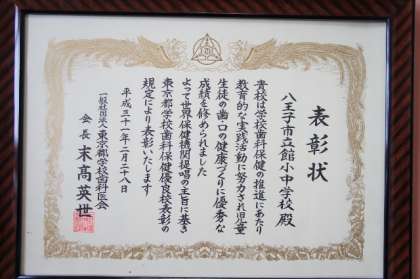 表彰状
八王子市立館小中学校 殿
貴校は学校歯科保健の推進にあたり
教育的な実践活動に努力され児童
生徒の歯・口の健康づくりに優秀な
成績を修められました
よって世界保健機関提唱の主旨に基き
東京都学校歯科保健優良校表彰の
規定により表彰いたします
平成三十一年二月二十八日
一般社団法人東京都学校歯科医会
会長 末髙英世